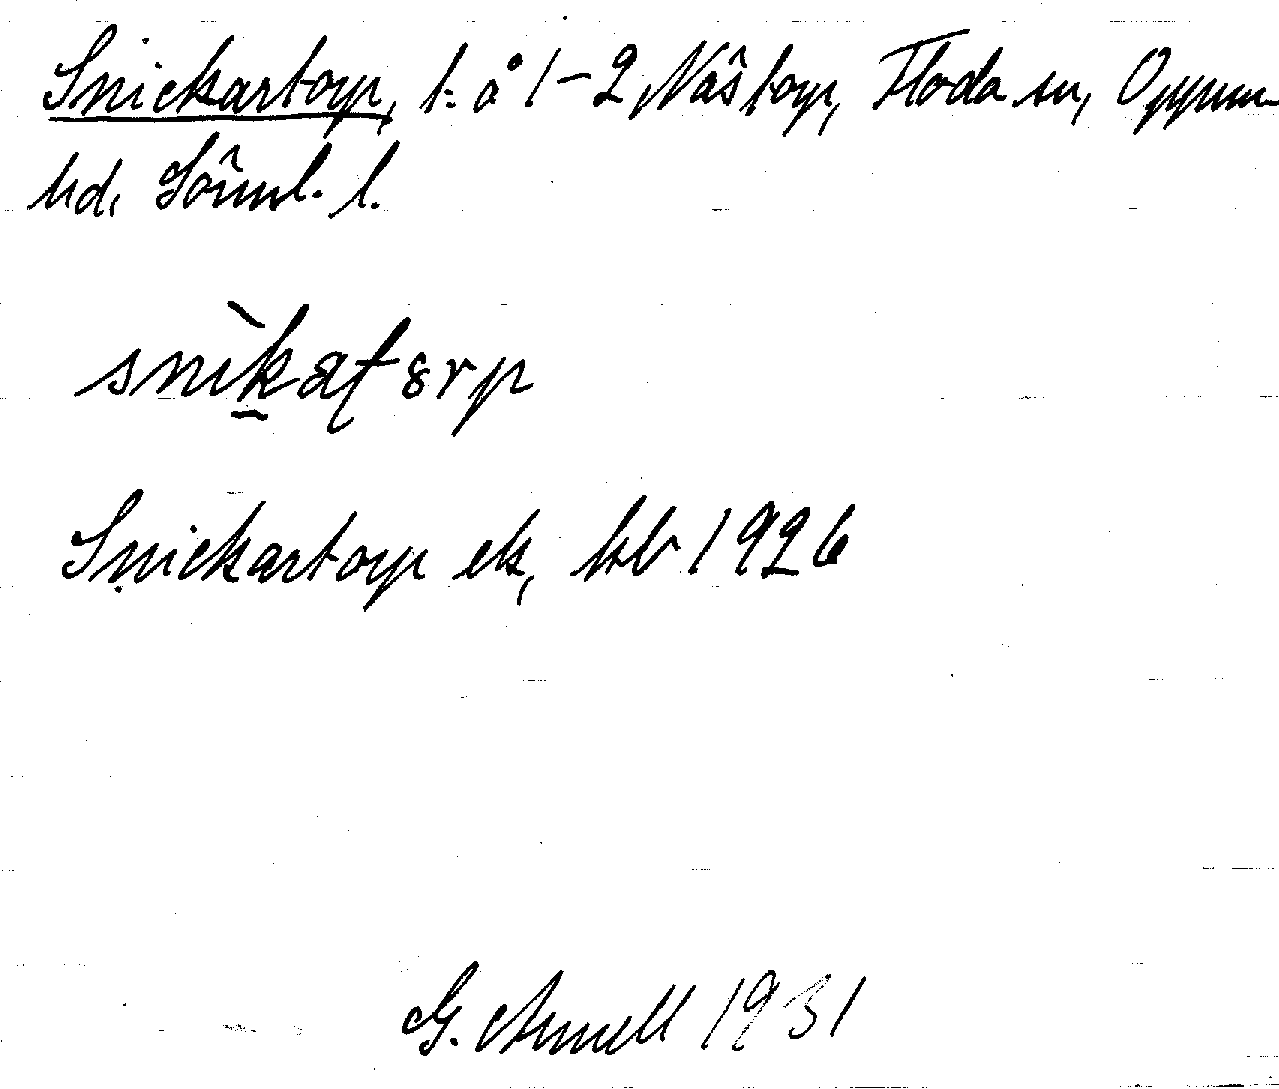 Snickartorp, t. å 1-2 Nästorp, Floda sn, Oppun-
hd, Sörml. l.
snìka̠ʈ8rp
Snickartorp ek, kb 1926
G. Arnell 1931